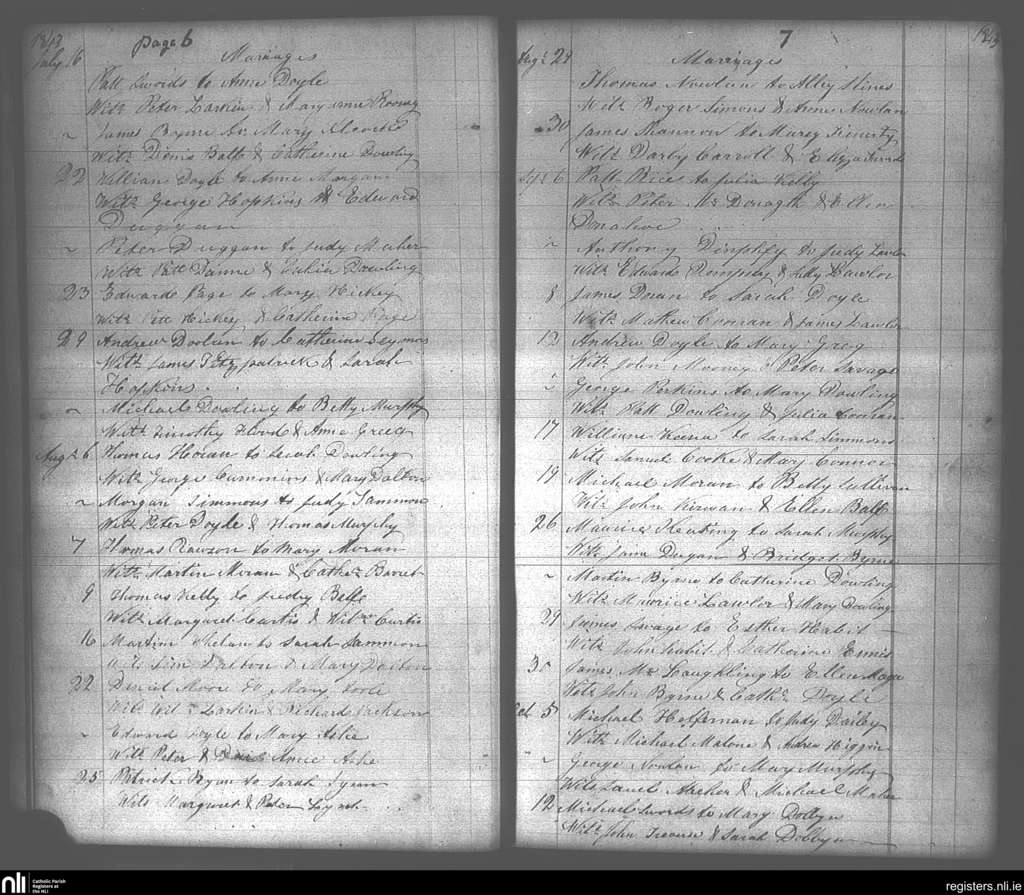 1843
Page 6
July 16
Marriages
Patt Swords to Anne Doyle
Witz Peter Larkin & Mary Anne Rooney
~ James Byrne to Mary
Witz Dionis Balf & Catherine Dowling
22 William Doyle to Anne Morgan
Witz George Hopkins & Edward
Duggan
~ Peter Duggan to Judy Maher
Witz Patt Dunne & Julia Dowling
23 Edward Page to Mary Hickey
Witz Patt Hickey & Catherine Page
29 Andrew Doolan to Catherine Seymor
Witz James Fitzpatrick & Sarah
Hopkins
~ Michael Dowling to Betty Murphy
Witz Timothy Flood & Anne Greeg
Augt 6 Thomas Horan to Dowling
Witz George Cummins & Mary Dalton
~ Morgan Simmons to Judy Sammon
Witz Peter Doyle & Thomas Murphy
7 Thomas Rawson to Mary Moran
Witz Martin Moran & Cathe
9 Thomas Kelly to Judy Balfe
Witz Margaret Curtis & Wilm Curtis
16 Martin Phelan to Sarah Sammon
Dalton & Mary Dalton
22 Daniel Moore to Mary Toole
Witz Wilm Larkin & Richard Jackson
~ Edward Doyle to Mary Ashe
Witz Peter & Anne Ashe
25 Patrick Ryan to Sarah
Wits Margaret & Peter Lynch
7
1843
Augt 29
Marriages
Thomas Nowlan to Alley Hines
Witz Roger Simons & Anne Nowlan
30 James Shannon to Mary Finerty
Witz Darby Carroll & Eliza
6 Patt Price to Julia Kelly
Witz Peter Mc Donagh & Ellen
Donahoe
~ Anthony Dimphey to Judy Lawlor
Witz Edward Dempsey & Lawlor
8 James Doran to Sarah Doyle
Witz Mathew Conran & James Lawlor
12 Andrew Doyle to Mary Greg
Witz John Mooney & Peter Savage
~ George Perkins to Mary Dowling
Witz Patt Dowling & Julia Conran
17 William Keena to Sarah Simmons
Witz Samuel Cooke & Mary Connor
19 Michael Moran to Betty Cullivan
Witz John Kirwan & Ellen Balf
26 Maurice Keating to Sarah Murphy
Witz Jane Dugan & Bridget Byrne
~ Martin Byrne to Catherine Dowling
Witz Maurice Lawlor & Mary Dowling
29 James Savage to Esther Habit
Witz John Habit & Catherine Ennis
30 James Mc Laughling to Ellen Magee
Witz John Byrne & Cathe Doyle
Oct 5 Michael Heffernan to Judy Dailey
Witz Michael Malone & Andrew Higgin
~ George Nowlan to Mary Murphy
Witz Archer & Michael Maher
12 Michael Swords to Mary Dolbyn
Witz John & Sarah Dolbyn
nli
Catholic Parish
Registers at
the NLI
registers.nli.ie